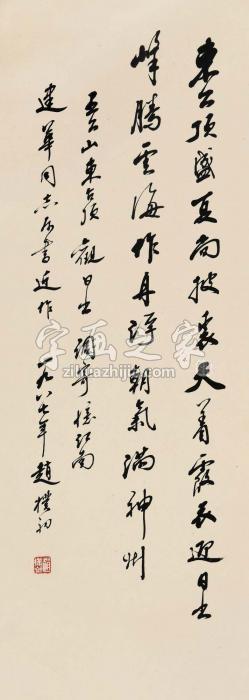 東台頂盛夏尚披裘天著霞衣迎日出
峰騰雲海作舟浮朝氣滿神州
五台山東台頂觀日出調寄憶江南
建華同志屬書近作 一九八七年 趙樸初
字画之家
zihuazhijia.com